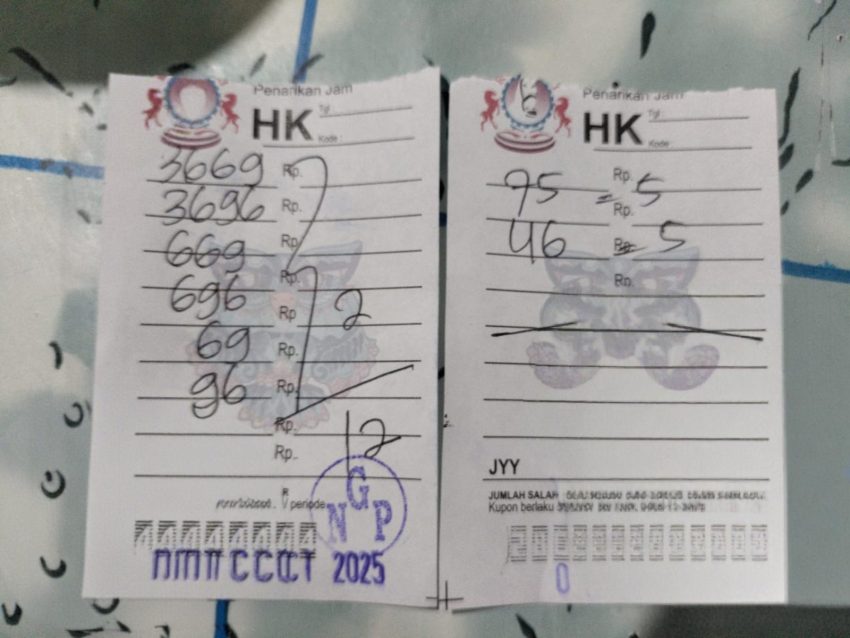 Penarikan Jam
HK
Tgl :
Kode :
3669 Rp.
3696 Rp.
669 Rp.
696 Rp. 2
69 Rp.
96 Rp.
Rp.
Rp. 12
periode
NGP
2025
Penarikan Jam
HK
Tgl :
Kode :
Rp.
75 = 5
Rp.
46 Rp. = 5
Rp.
JYY
JUMLAH SALAH
Kupon berlaku
0